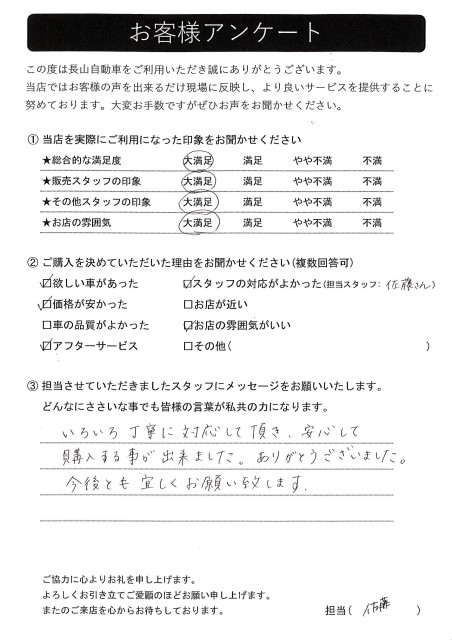 お客様アンケート
この度は長山自動車をご利用いただき誠にありがとうございます。
当店ではお客様の声を出来るだけ現場に反映し、より良いサービスを提供することに
努めております。大変お手数ですがぜひお声をお聞かせください。
① 当店を実際にご利用になった印象をお聞かせください
★総合的な満足度 大満足 満足 やや不満 不満
★販売スタッフの印象 大満足 満足 やや不満 不満
★その他スタッフの印象 大満足 満足 やや不満 不満
★お店の雰囲気 大満足 満足 やや不満 不満
② ご購入を決めていただいた理由をお聞かせください(複数回答可)
☑欲しい車があった ☑スタッフの対応がよかった(担当スタッフ: 佐藤さん)
☑価格が安かった □お店が近い
□車の品質がよかった ☑お店の雰囲気がいい
☑アフターサービス □その他( )
③ 担当させていただきましたスタッフにメッセージをお願いいたします。
どんなにささいな事でも皆様の言葉が私共の力になります。
いろいろ丁寧に対応して頂き、安心して
購入する事が出来ました。ありがとうございました。
今後とも宜しくお願い致します.
ご協力に心よりお礼を申し上げます。
よろしくお引き立てご愛顧のほどお願い申し上げます。
またのご来店を心からお待ちしております。 担当( 佐藤 )